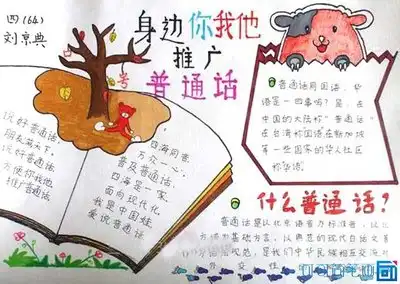 四(64)
刘京典
身边你我他
推广
普通话
说好普通话,
朋友满天下,
说好普通话
方便你我他
推广普通话
四海同音,
万众一心,
普及普通话,
四海是一家,
面向现代化,
我是中国娃,
爱说普通话
普通话同国语、华
语是一回事吗?是,在
中国的大陆称“普通话”
在台湾称国语在新加坡
等一些国家的华人社区
称华语。
什么普通话?
普通话是以北京语音为标准音,以北
方话为基础方言,以典范的现代白话文著
语法规范,是我们中华民族相互交流